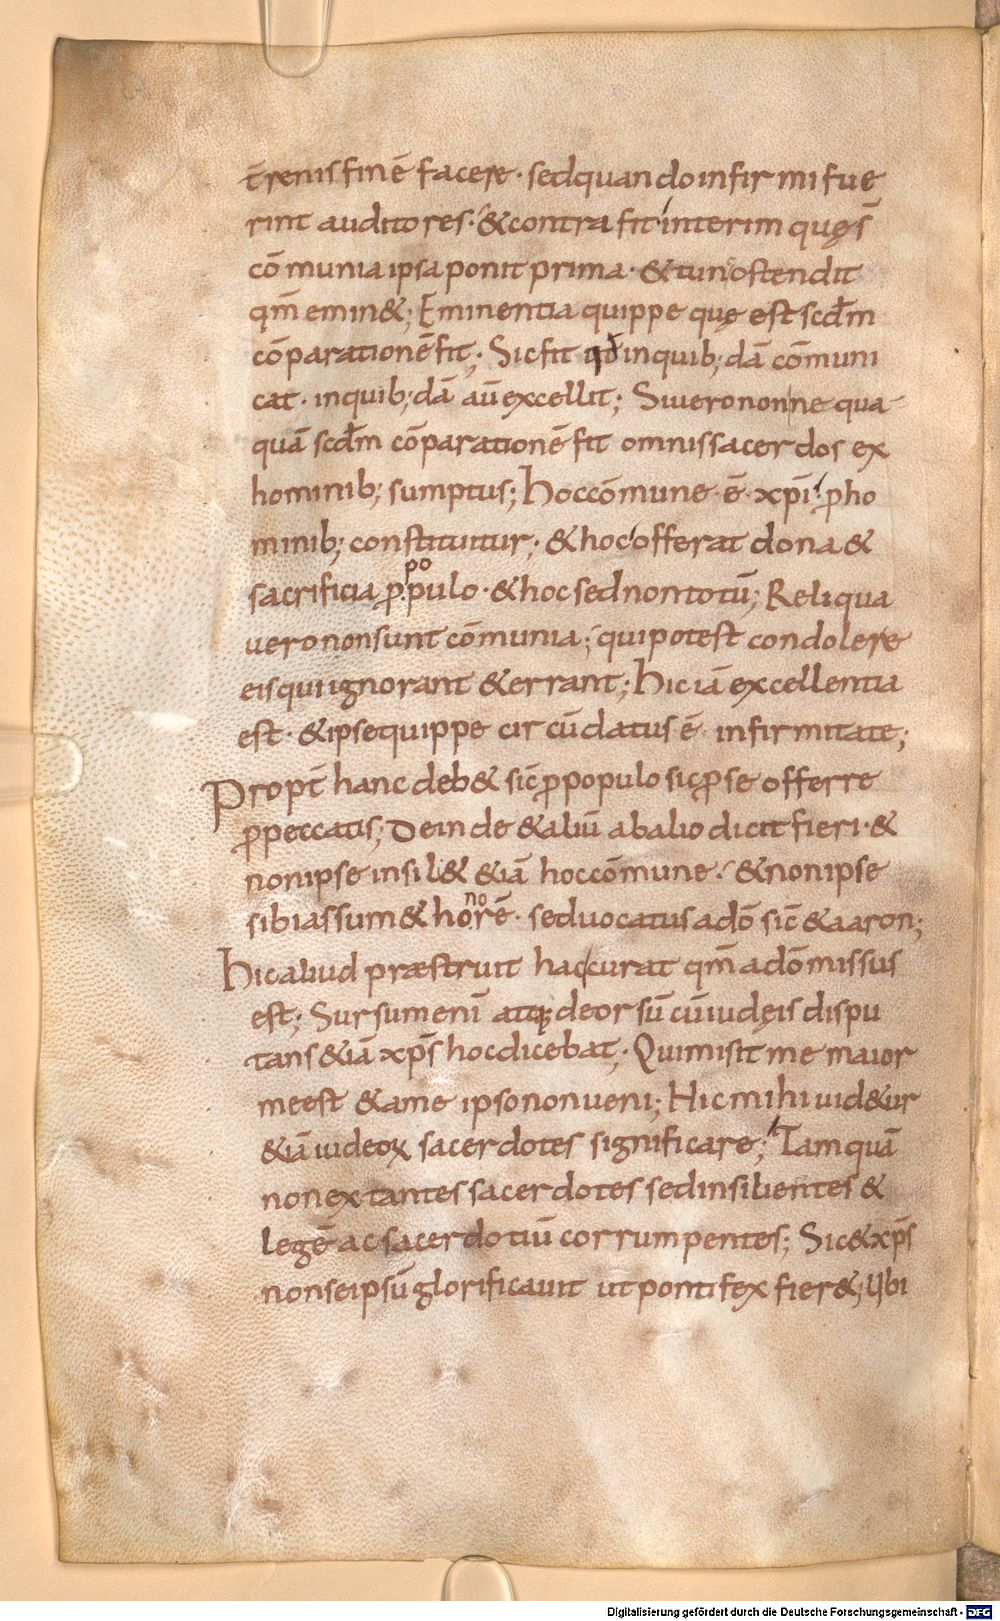 t̄renis finē facere · sed quando infirmi fue
rint auditores · & contra fit interim quęs̄
cōmunia ipsa ponit prima · & tunc ostendit
qm̄ emin&; Eminentia quippe quę est scd̄m
cōparationē fit; Sic fit id inquib; dā cōmuni
cat · inquib; dā aū excellit; Si uero non ne qua
quā scd̄m cōparationē fit omnis sacerdos ex
hominib; sumptus; hoc cōmune · ē · xp̄i · ꝓ ho
minib; constituitur; & hoc offerat dona &
sacrificia ꝓ populo · & hoc sed non totū; Reliqua
uero non sunt cōmunia; qui potest condolere
eis qui ignorant & errant; hic iā excellentia
est · & ipse quippe circūdatus ē infirmitate;
Propt̄ hanc deb& sic̄ ꝓ populo sic ꝓ se offerre
ꝓ peccatis; Deinde & aliū ab alio dicit fieri · &
non ipse insil& &iā hoc cōmune · & non ipse
sibi assum& honorē · sed uocatus a dō sic̄ & aaron;
hic aliud præstruit hac curat qm̄ a dō missus
est; Sursum enī atq; deorsū cū iudęis dispu
tans &iā xp̄s hoc dicebat; Qui misit me maior
me est & a me ipso non ueni; Hic mihi uid&ur
&iā iudeoꝝ sacerdotes significare; Tamquā
non extantes sacerdotes sed insilientes &
legē ac sacerdotiū corrumpentes; Sic & xp̄s
non se ipsū glorificauit ut pontifex fier&; Ubi
Digitalisierung gefördert durch die Deutsche Forschungsgemeinschaft - DFG